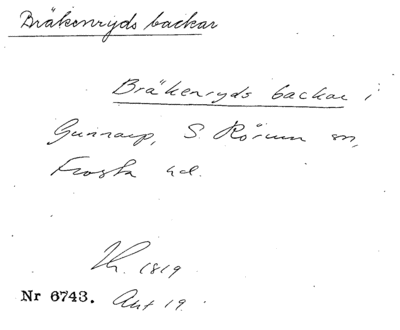 Bräkenryds backar
Bräkenryds backar i
Gunnarp, S. Rörum sn,
Frosta hd.
1819
Nr 6743. Akt 19.